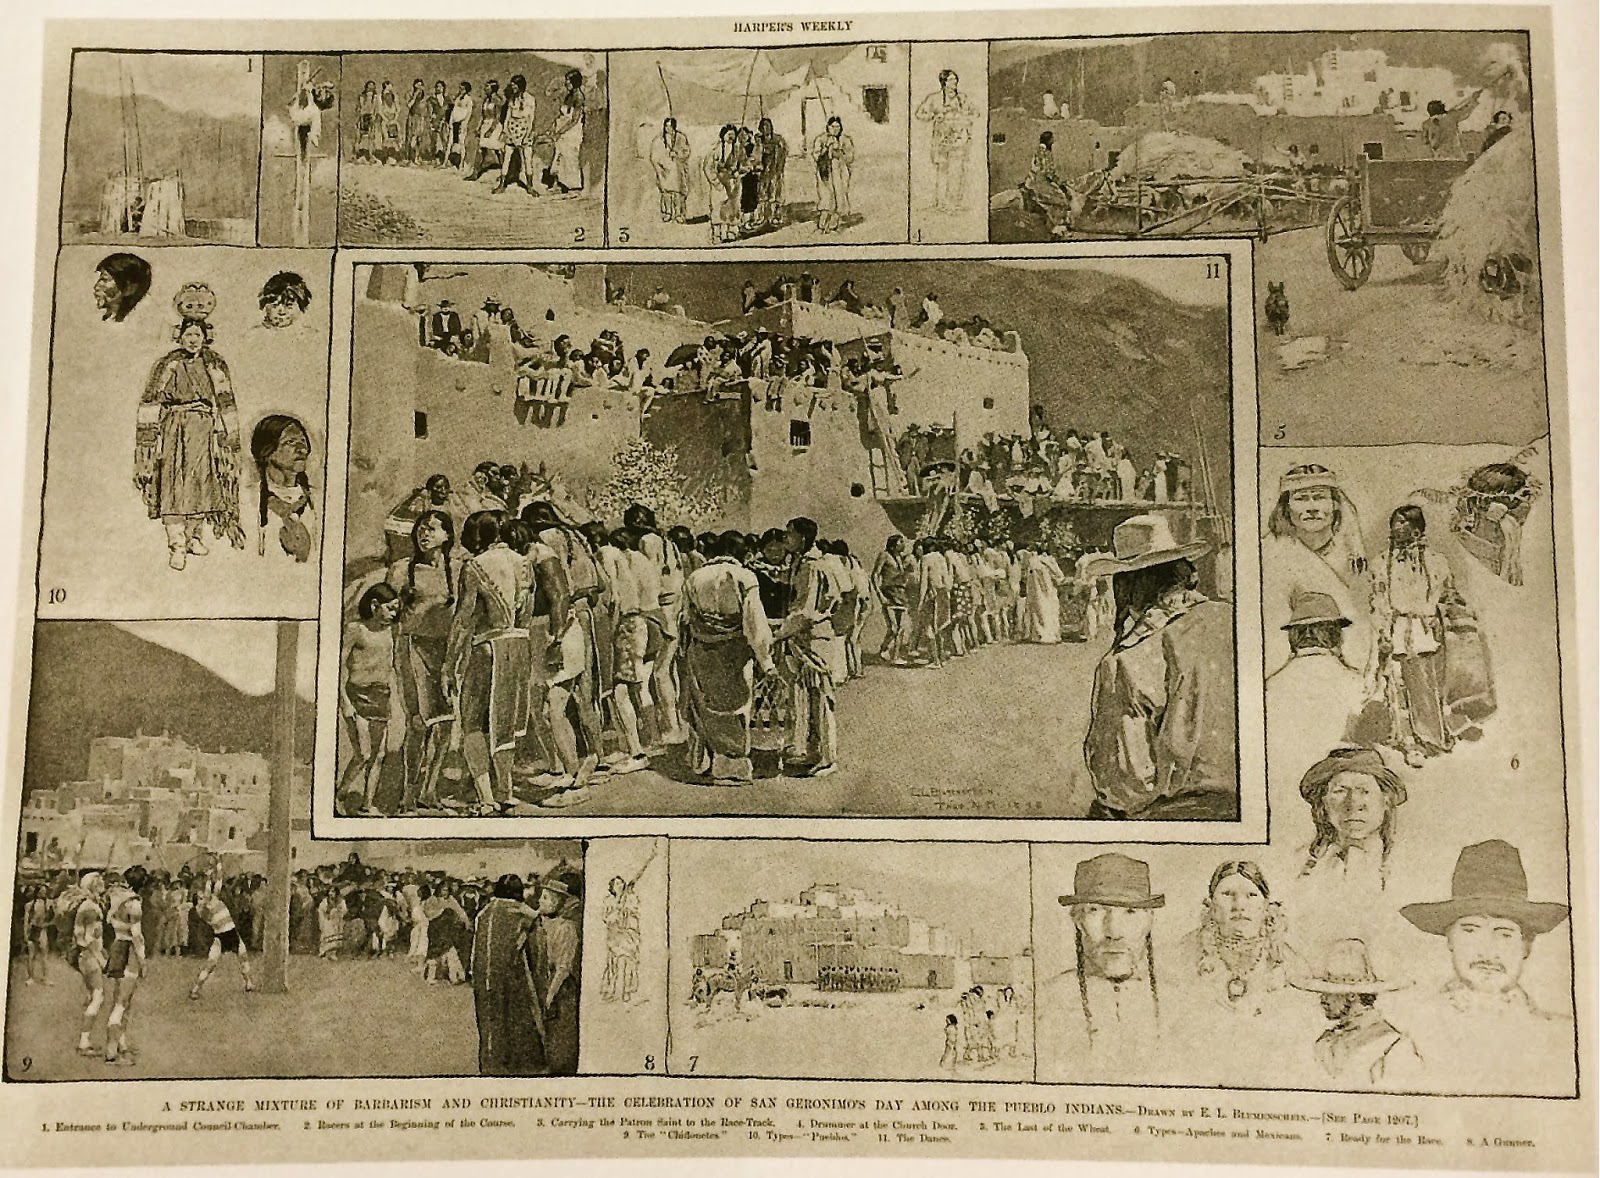 HARPER'S WEEKLY
1
2
3
4
5
11
10
6
9
8
7
E. L. BLUMENSCHEIN.
TAOS N.M. 1898
A STRANGE MIXTURE OF BARBARISM AND CHRISTIANITY—THE CELEBRATION OF SAN GERONIMO'S DAY AMONG THE PUEBLO INDIANS.—DRAWN BY E. L. BLUMENSCHEIN.—[SEE PAGE 1207.]
1. Entrance to Underground Council-Chamber. 2. Racers at the Beginning of the Course. 3. Carrying the Patron Saint to the Race-Track. 4. Drummer at the Church Door. 5. The Last of the Wheat. 6. Types—Apaches and Mexicans. 7. Ready for the Race. 8. A Gunner.
9. The "Chifonetes." 10. Types—"Pueblos." 11. The Dance.